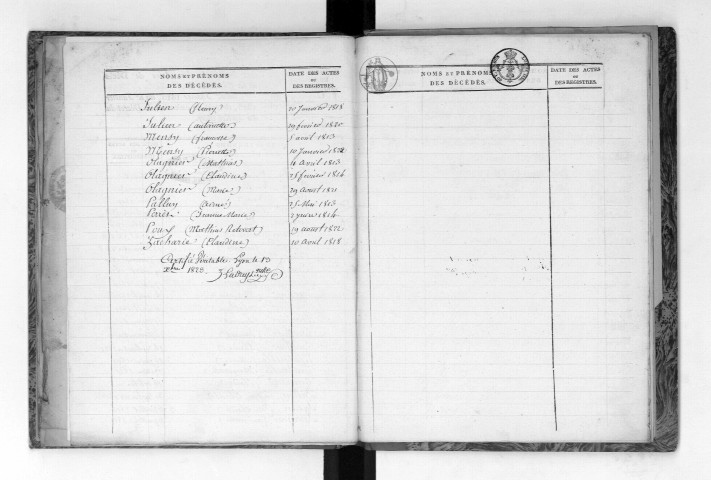 NOMS ET PRÉNOMS
DES DÉCÉDÉS.
DATE DES ACTES
OU
DES REGISTRES.
Julien (fleury) 20 Janvier 1818
Julien (antoinette) 19 février 1820
Mensy (francoise) 5 avril 1813
Mensy (Pierrette) 10 Janvier
Olagnier (Mathias) 4 avril 1813
Olagnier (Claudine) 25 février 1816
Olagnier (Marie) 29 aoust 1821
Pallay 25 Mai 1813
Perret (Jeanne Marie) 2 juin 1816
Poux (Mathieu) 19 aoust 1822
Zacharie (Claudine) 10 Avril 1818
Certifié Véritable. Lyon le 15
1825
NOMS ET PRÉNOMS
DES DÉCÉDÉS.
DATE DES ACTES
OU
DES REGISTRES.